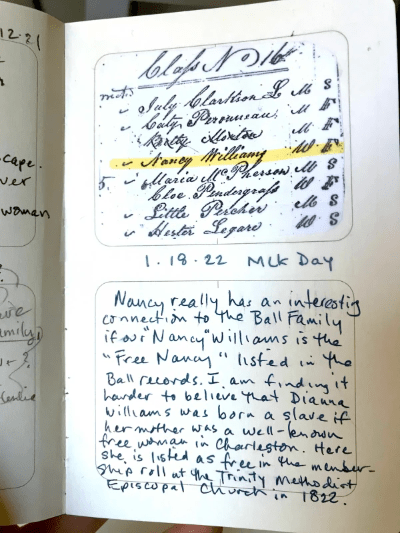 12.21
cape
ver
woman
Class No 16
met.
July Clarkson L M S
Caty Peronneau M F
Betty M F
Nancy Williams W F
5. Maria McPherson M S
Cloe Pendergrass W F
Little Percher M S
Hester Legare W S
1.18.22 MLK Day
Nancy really has an interestig
connection to the Ball Family
if our "Nancy" Williams is the
"Free Nancy" listed in the
Ball records. I am finding it
harder to believe that Dianna
Williams was born a slave if
her mother was a well-known
free woman in Charleston. Here
she is listed as free in the member-
ship roll at the Trinity Methodist
Episcopal Church in 1822.